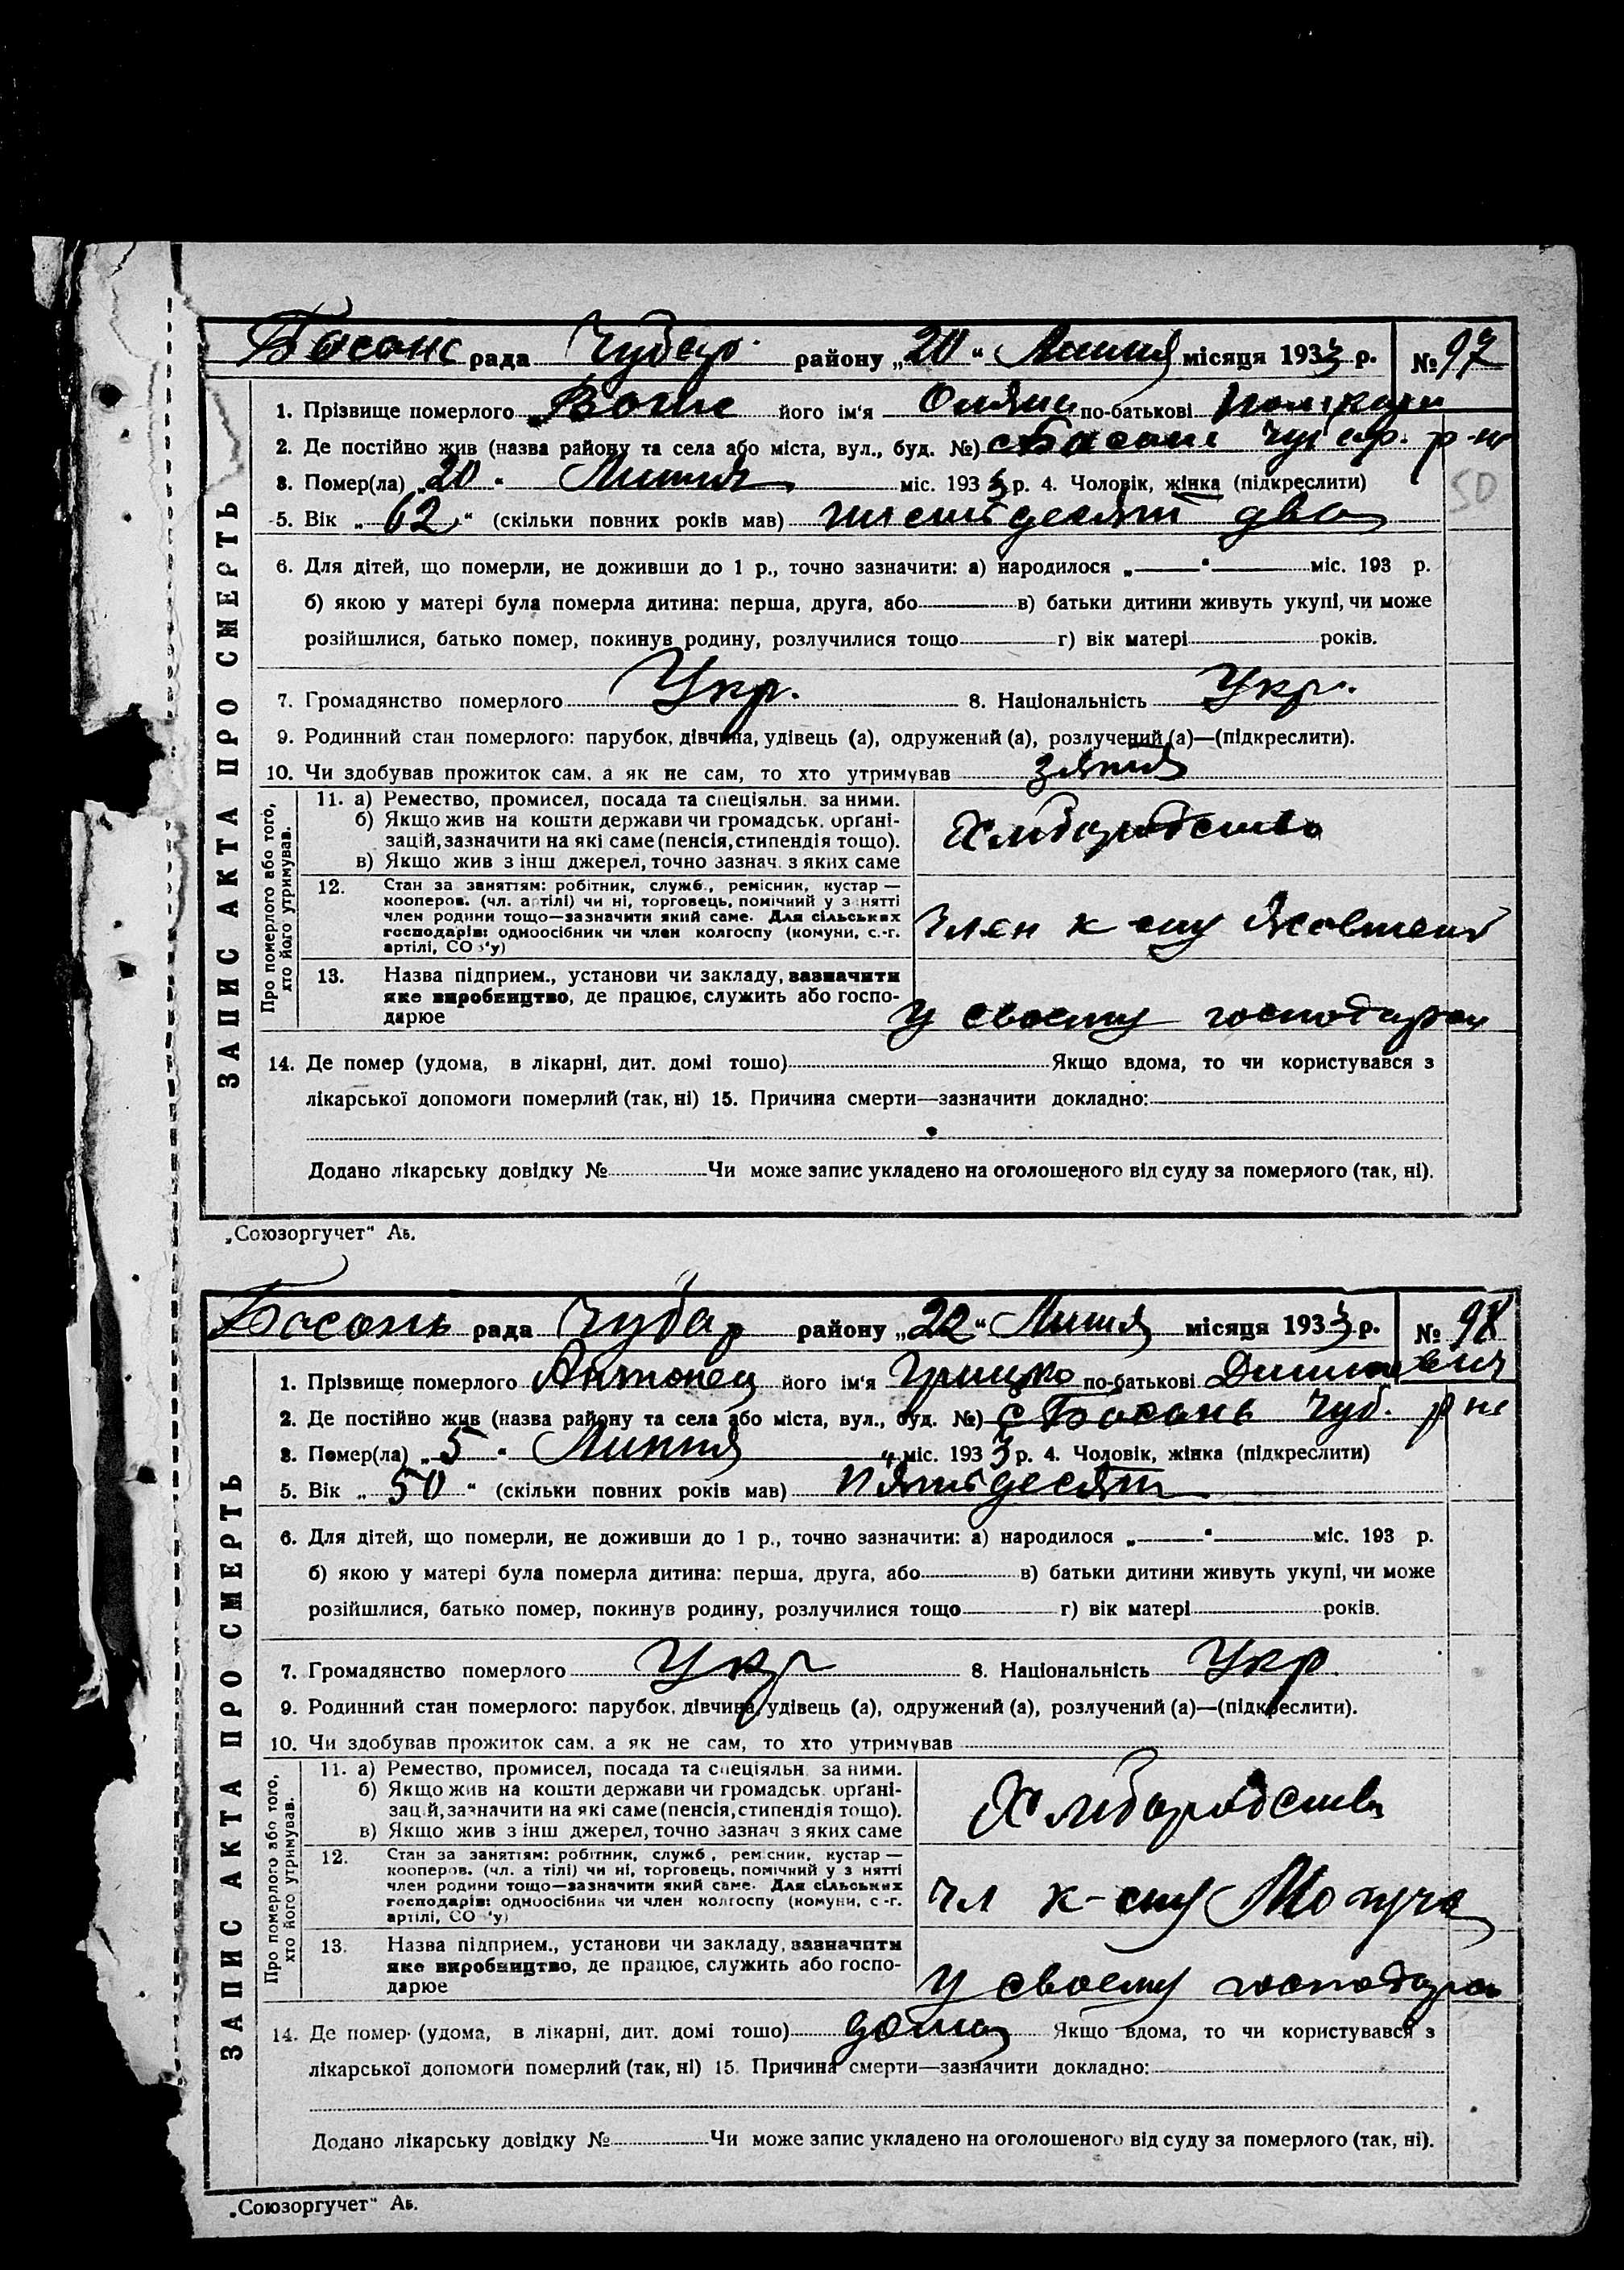 Басань рада Чубар. району „20“ Липня місяця 1933 р. № 97
1. Прізвище померлого його ім'я по-батькові
2. Де постійно жив (назва району та села або міста, вул., буд. №) с Басань Чубар. р-н
50
3. Помер(ла) „20“ Липня міс. 1933 р. 4. Чоловік, жінка (підкреслити)
5. Вік „62“ (скільки повних років мав) шістьдесят два
6. Для дітей, що померли, не доживши до 1 р., точно зазначити: а) народилося „ “ міс. 193 р.
б) якою у матері була померла дитина: перша, друга, або в) батьки дитини живуть укупі, чи може
розійшлися, батько помер, покинув родину, розлучилися тощо г) вік матері років.
7. Громадянство померлого Укр. 8. Національність Укр.
9. Родинний стан померлого: парубок, дівчина, удівець (а), одружений (а), розлучений (а)—(підкреслити).
10. Чи здобував прожиток сам, а як не сам, то хто утримував зятя
ЗАПИС АКТА ПРО СМЕРТЬ
Про померлого або того, хто його утримував.
11. а) Ремество, промисел, посада та спеціяльн. за ними.
б) Якщо жив на кошти держави чи громадськ. орґані-
зацій, зазначити на які саме (пенсія, стипендія тощо).
в) Якщо жив з інш джерел, точно зазнач. з яких саме
Хліборобство
12. Стан за заняттям: робітник, служб., ремісник, кустар —
кооперов. (чл. артілі) чи ні, торговець, помічний у занятті
член родини тощо—зазначити який саме. Для сільських
господарів: одноосібник чи член колгоспу (комуни, с.-г.
артілі, СО у)
Член к-спу Жовтень
13. Назва підприєм., установи чи закладу, зазначити
яке виробництво, де працює, служить або госпо-
дарює
у своєму господарст
14. Де помер (удома, в лікарні, дит. домі тощо) Якщо вдома, то чи користувався з
лікарської допомоги померлий (так, ні) 15. Причина смерти—зазначити докладно:
Додано лікарську довідку № Чи може запис укладено на оголошеного від суду за померлого (так, ні).
„Союзоргучет“ Аб.
Басань рада Чубар району „22“ Липня місяця 1933 р. № 98
1. Прізвище померлого Антонец його ім'я Грицко по-батькові
2. Де постійно жив (назва району та села або міста, вул., буд. №) с Басань Чуб. р-не
3. Помер(ла) „5“ Липня міс. 1933 р. 4. Чоловік, жінка (підкреслити)
5. Вік „50“ (скільки повних років мав) пятьдесят
6. Для дітей, що померли, не доживши до 1 р., точно зазначити: а) народилося „ “ міс. 193 р.
б) якою у матері була померла дитина: перша, друга, або в) батьки дитини живуть укупі, чи може
розійшлися, батько помер, покинув родину, розлучилися тощо г) вік матері років.
7. Громадянство померлого Укр 8. Національність Укр.
9. Родинний стан померлого: парубок, дівчина, удівець (а), одружений (а), розлучений (а)—(підкреслити).
10. Чи здобував прожиток сам, а як не сам, то хто утримував
ЗАПИС АКТА ПРО СМЕРТЬ
Про померлого або того, хто його утримував.
11. а) Ремество, промисел, посада та спеціяльн за ними.
б) Якщо жив на кошти держави чи громадськ. орґані-
зацій, зазначити на які саме (пенсія, стипендія тощо).
в) Якщо жив з інш джерел, точно зазнач з яких саме
Хліборобства
12. Стан за заняттям: робітник, служб., ремісник, кустар —
кооперов. (чл. артілі) чи ні, торговець, помічний у занятті
член родини тощо—зазначити який саме. Для сільських
господарів: одноосібник чи член колгоспу (комуни, с-г.
артілі, СО у)
чл к-спу
13. Назва підприєм., установи чи закладу, зазначити
яке виробництво, де працює, служить або госпо-
дарює
у своєму господарст
14. Де помер (удома, в лікарні, дит. домі тощо) дома Якщо вдома, то чи користувався з
лікарської допомоги померлий (так, ні) 15. Причина смерти—зазначити докладно:
Додано лікарську довідку № Чи може запис укладено на оголошеного від суду за померлого (так, ні).
„Союзоргучет“ Аб.